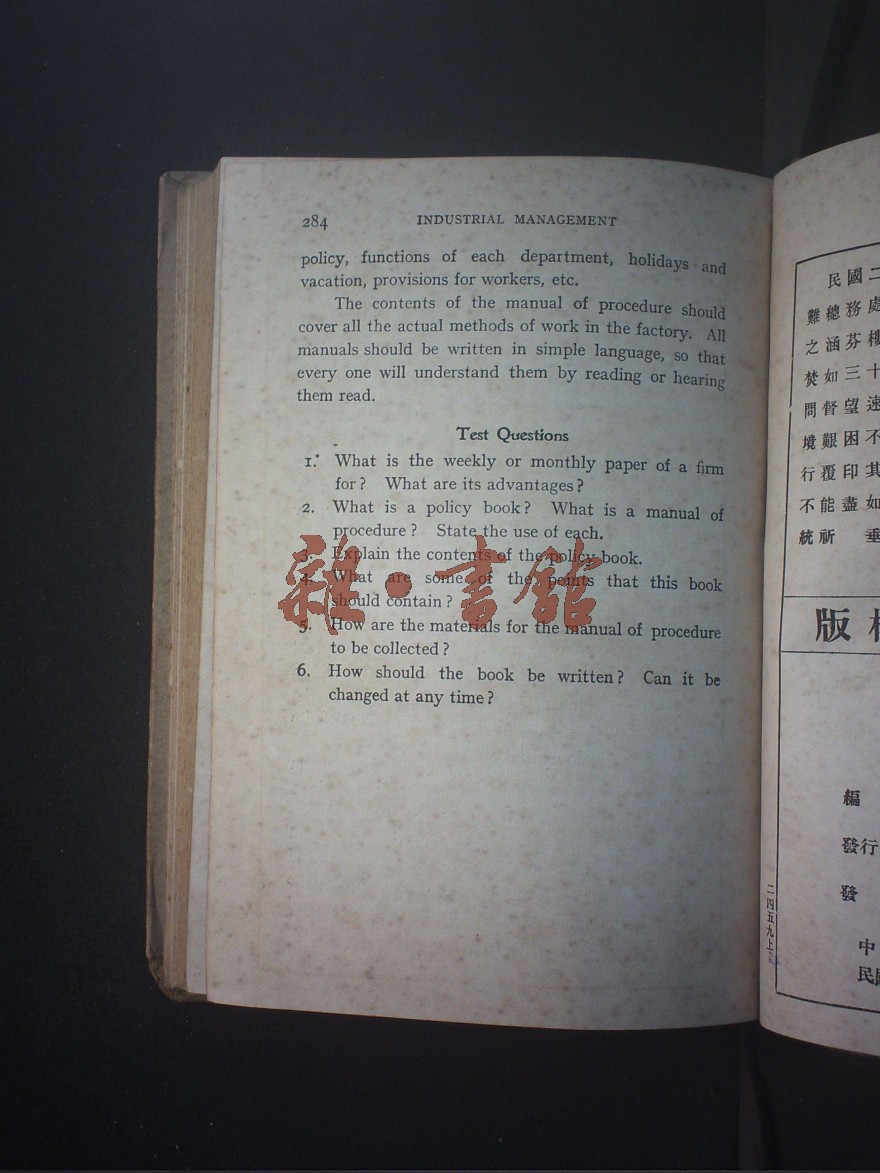 284 INDUSTRIAL MANAGEMENT
policy, functions of each department, holidays and
vacation, provisions for workers, etc.
The contents of the manual of procedure should
cover all the actual methods of work in the factory. All
manuals should be written in simple language, so that
every one will understand them by reading or hearing
them read.
Test Questions
1. What is the weekly or monthly paper of a firm
for? What are its advantages?
2. What is a policy book? What is a manual of
procedure? State the use of each.
3. Explain the contents of the policy book.
4. What are some of the points that this book
should contain?
5. How are the materials for the manual of procedure
to be collected?
6. How should the book be written? Can it be
changed at any time?
雜·書館
民國二
難總務處
之涵芬樓
焚如三十
問督望速
境艱困不
行覆印其
不能盡如
統祈 垂
版
編
發行
發
中
民
二四五九上